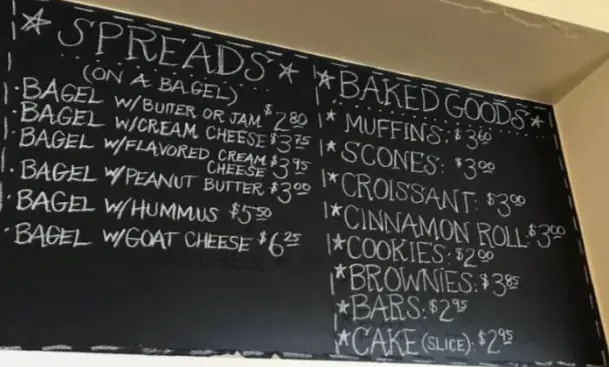 SPREADS
(ON A BAGEL)
BAGEL W/BUTTER OR JAM $2.80
BAGEL W/CREAM CHEESE $3.75
BAGEL W/FLAVORED CREAM
CHEESE $3.95
BAGEL W/PEANUT BUTTER $3.00
BAGEL W/HUMMUS $5.50
BAGEL W/GOAT CHEESE $6.25
BAKED GOODS
MUFFINS: $3.60
SCONES: $3.00
CROISSANT: $3.00
CINNAMON ROLL: $3.00
COOKIES: $2.00
BROWNIES: $3.85
BARS: $2.95
CAKE (SLICE): $2.95